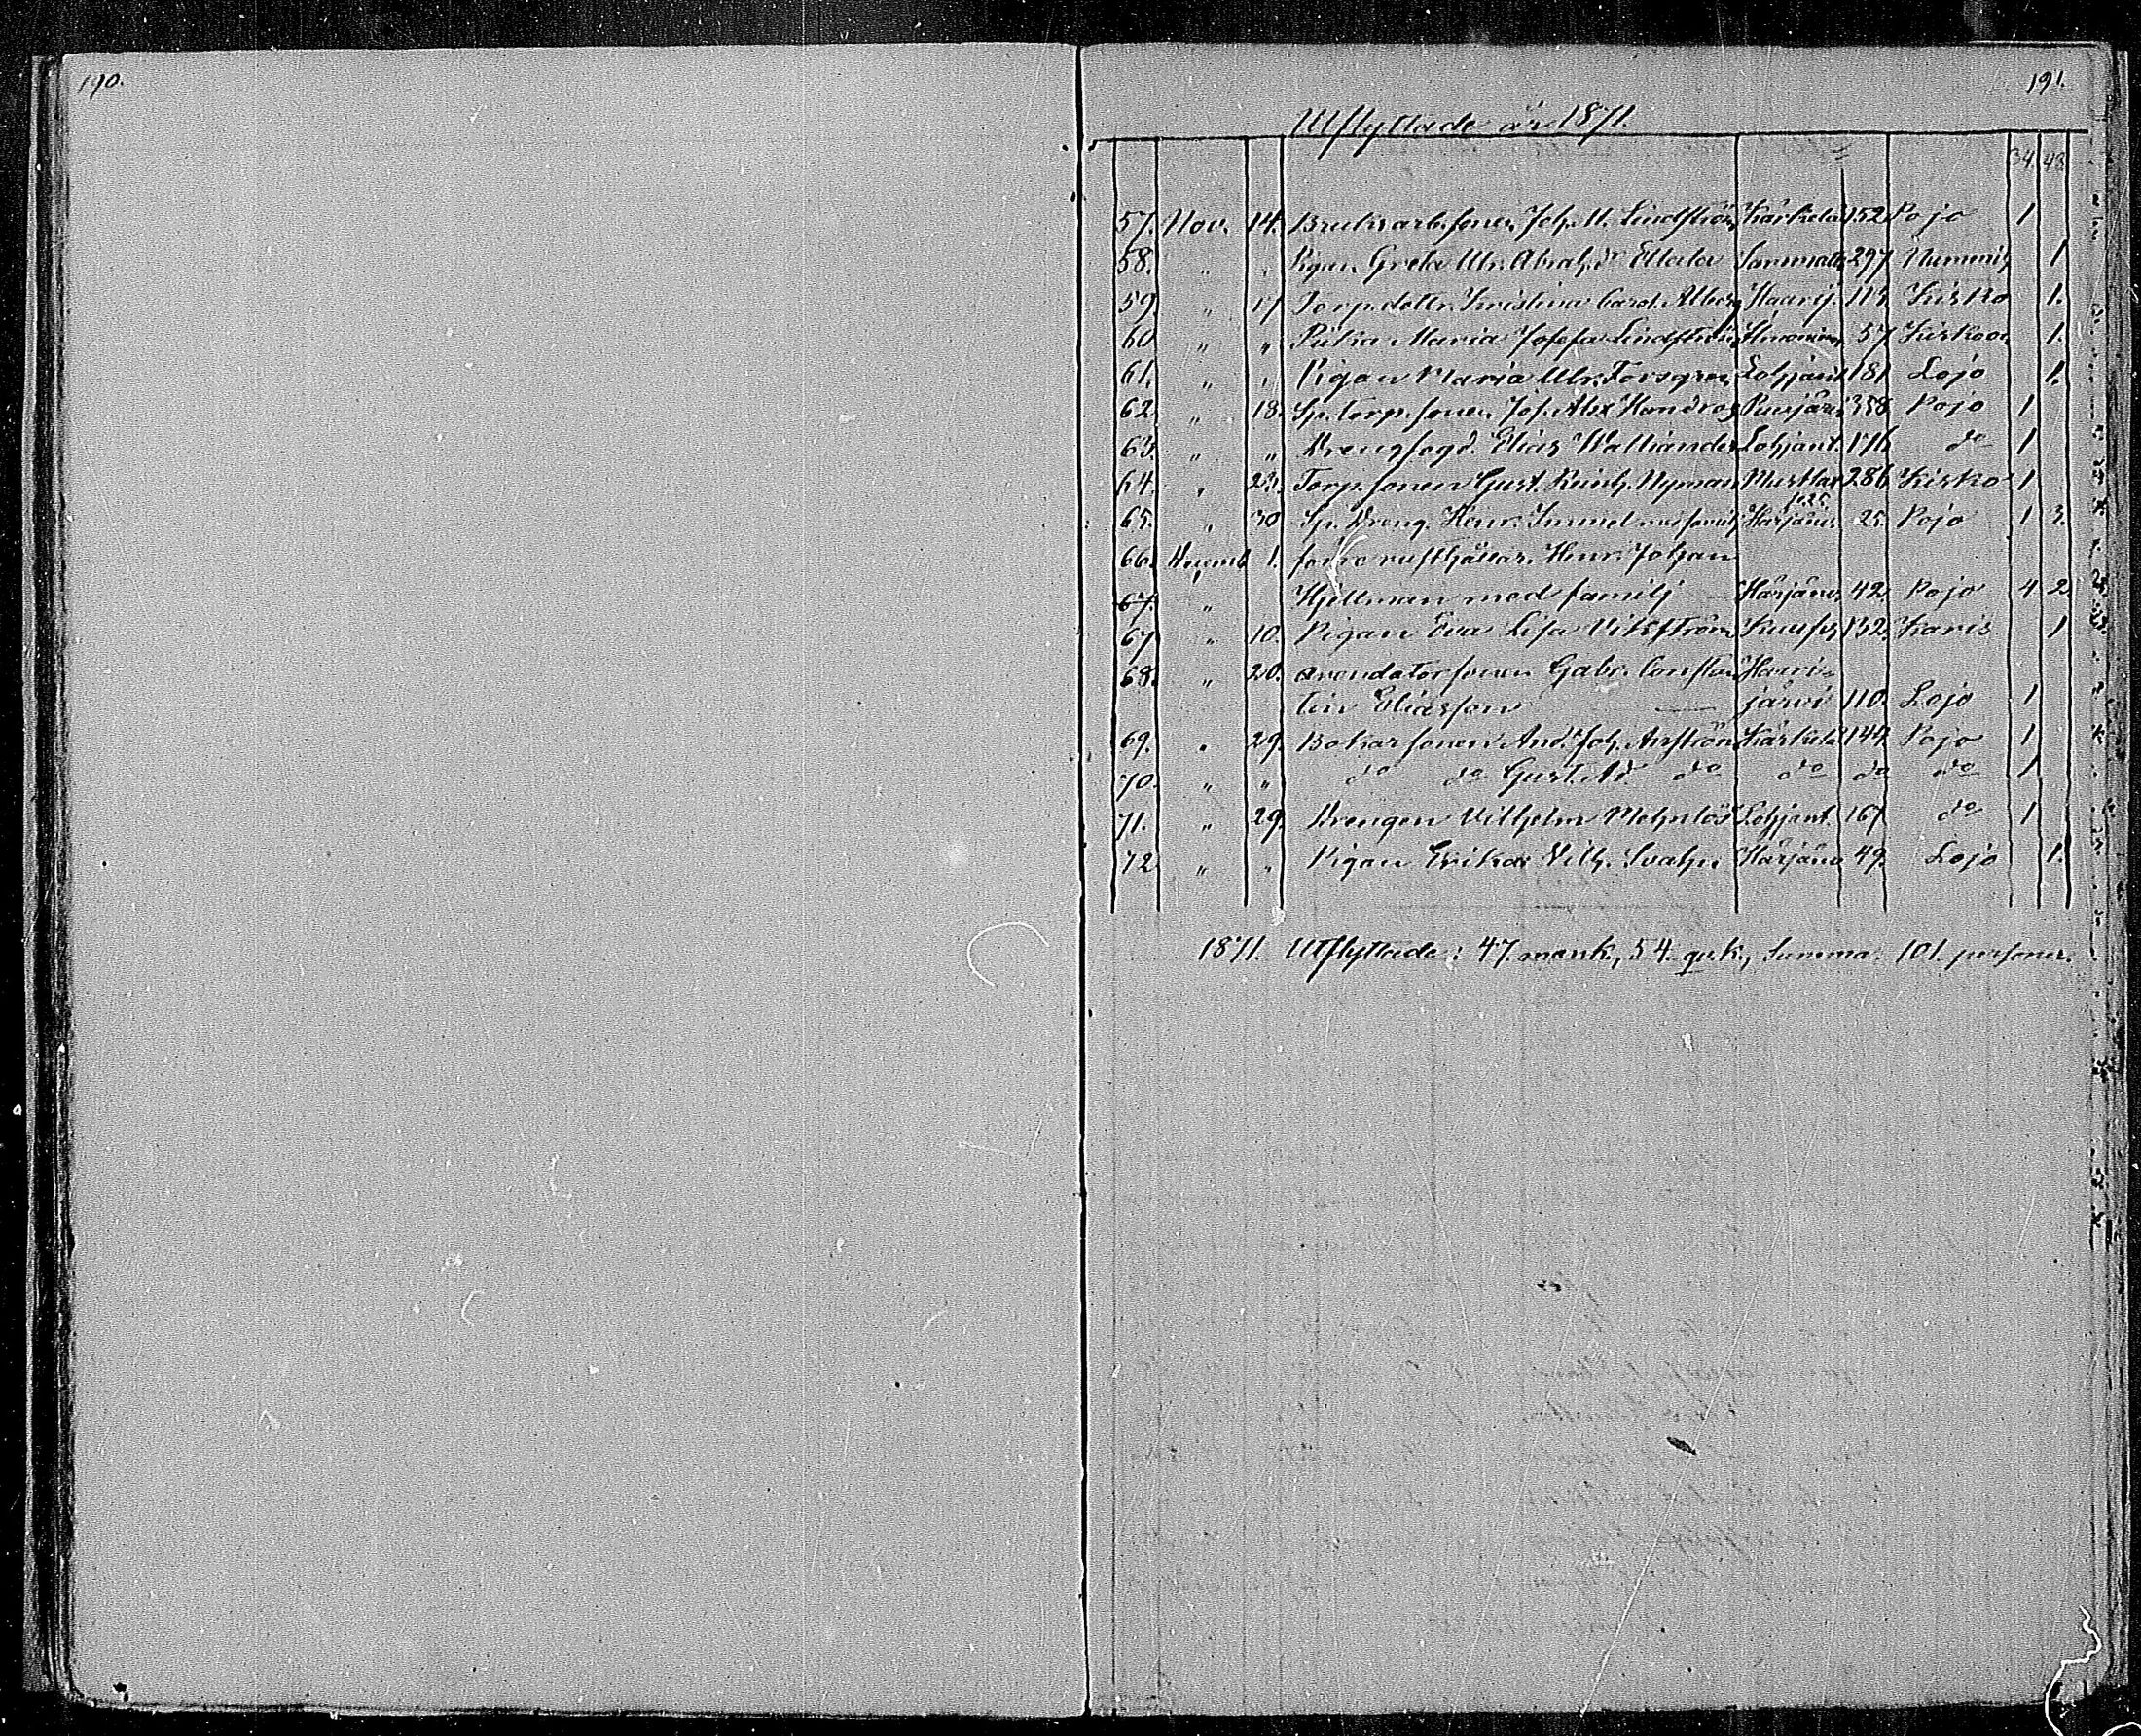 190.
191.
Utflyttade år 1871.
34. 43.
57. Nov. 14. Bruksarb.sonen Joh. M. Lindström Kärkelä 152 Pojo 1
58. " " Pigan Greta Ulr. Abrah. dr Sammatti 297 Nummis 1
59. " 17 Torp. dottr. Kristina Carol. Alberg Haarij. 113 Kisko 1.
60 " " Pirka Maria Josefa Lindström 57 Kisko 1.
61. " " Pigan Maria Ulr. Forsgren Lohjant. 181 Lojo 1.
62 " 18. Sp. torp. sonen Joh. Alex 358 Pojo 1
63. " " Drengfogd. Elias Walliander Lohjant. 176 do 1
64. " 23. Torp. sonen Gust. Reinh. Nyman Mustlax 286 Kisko 1
65. " 30 Sp. Dreng. Henr. Immel med familj Härjänv. 25. Pojo 1 3.
66. Decemb 1. förre rusthållar. Henr. Johan
67. " Hjellman med familj — Härjänv. 42. Pojo 4 2
67 " 10. Pigan Eva Lisa Vikström 132 Karis 1
68. " 20. arendatorsonen Gabr. Constan Haari-
tin Eliasson — järvi 110. Lojo 1
69. " 29. Bokarsonen And. Joh. Kärkelä 144 Pojo 1
70. " " do do Gust. Ad. do do do do 1
71. " 29. Drengen Vilhelm Lohjant. 167 do 1
72 " " Pigan Erika Vilh. Svahn Härjänv 49. Lojo 1.
1871. Utflyttade: 47. mank., 54. qv.k., Summa. 101. personer.